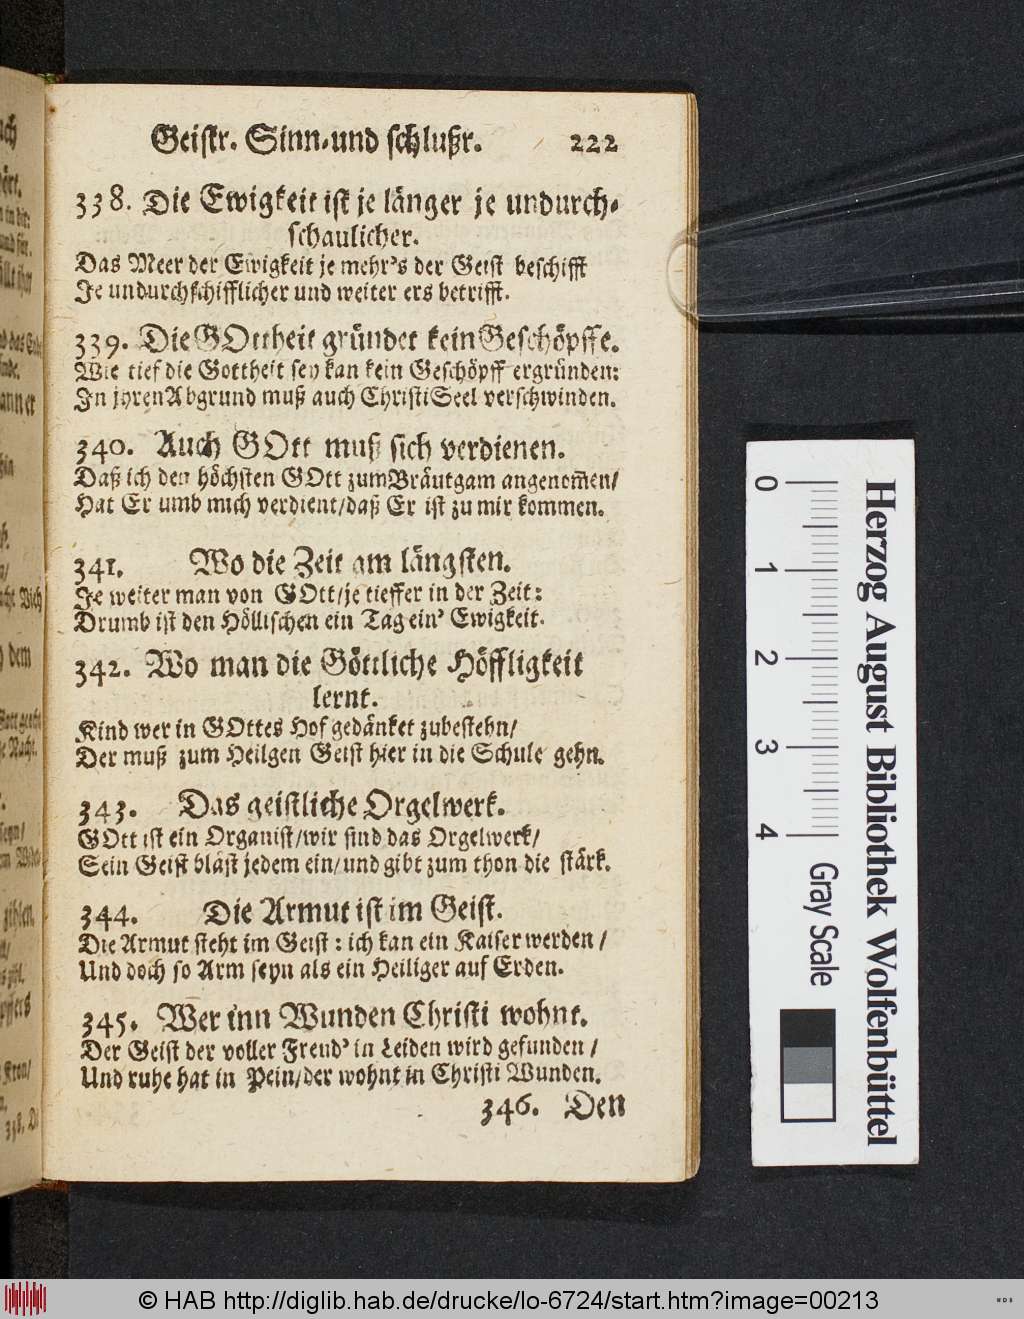 Geistr. Sinn-und schlußr. 222
338. Die Ewigkeit ist je länger je undurch-
schaulicher.
Das Meer der Ewigkeit je mehr's der Geist beschifft
Je undurchschifflicher und weiter ers betrifft.
339. Die GOttheit gründet kein Geschöpffe.
Wie tief die Gottheit sey kan kein Geschöpff ergründen:
In jhren Abgrund muß auch Christi Seel verschwinden.
340. Auch GOtt muß sich verdienen.
Daß ich den höchsten GOtt zum Bräutgam angenom̃en/
Hat Er umb mich verdient/daß Er ist zu mir kommen.
341. Wo die Zeit am längsten.
Je weiter man von GOtt/je tieffer in der Zeit:
Drumb ist den Höllischen ein Tag ein' Ewigkeit.
342. Wo man die Göttliche Höffligkeit
lernt.
Kind wer in GOttes Hof gedänket zubestehn/
Der muß zum Heilgen Geist hier in die Schule gehn.
343. Das geistliche Orgelwerk.
GOtt ist ein Organist/wir sind das Orgelwerk/
Sein Geist bläst jedem ein/und gibt zum thon die stärk.
344. Die Armut ist im Geist.
Die Armut steht im Geist: ich kan ein Kaiser werden/
Und doch so Arm seyn als ein Heiliger auf Erden.
345. Wer inn Wunden Christi wohnt.
Der Geist der voller Freud' in Leiden wird gefunden/
Und ruhe hat in Pein/der wohnt in Christi Wunden.
346. Den
0 1 2 3 4 Gray Scale
Herzog August Bibliothek Wolfenbüttel
© HAB http://diglib.hab.de/drucke/lo-6724/start.htm?image=00213